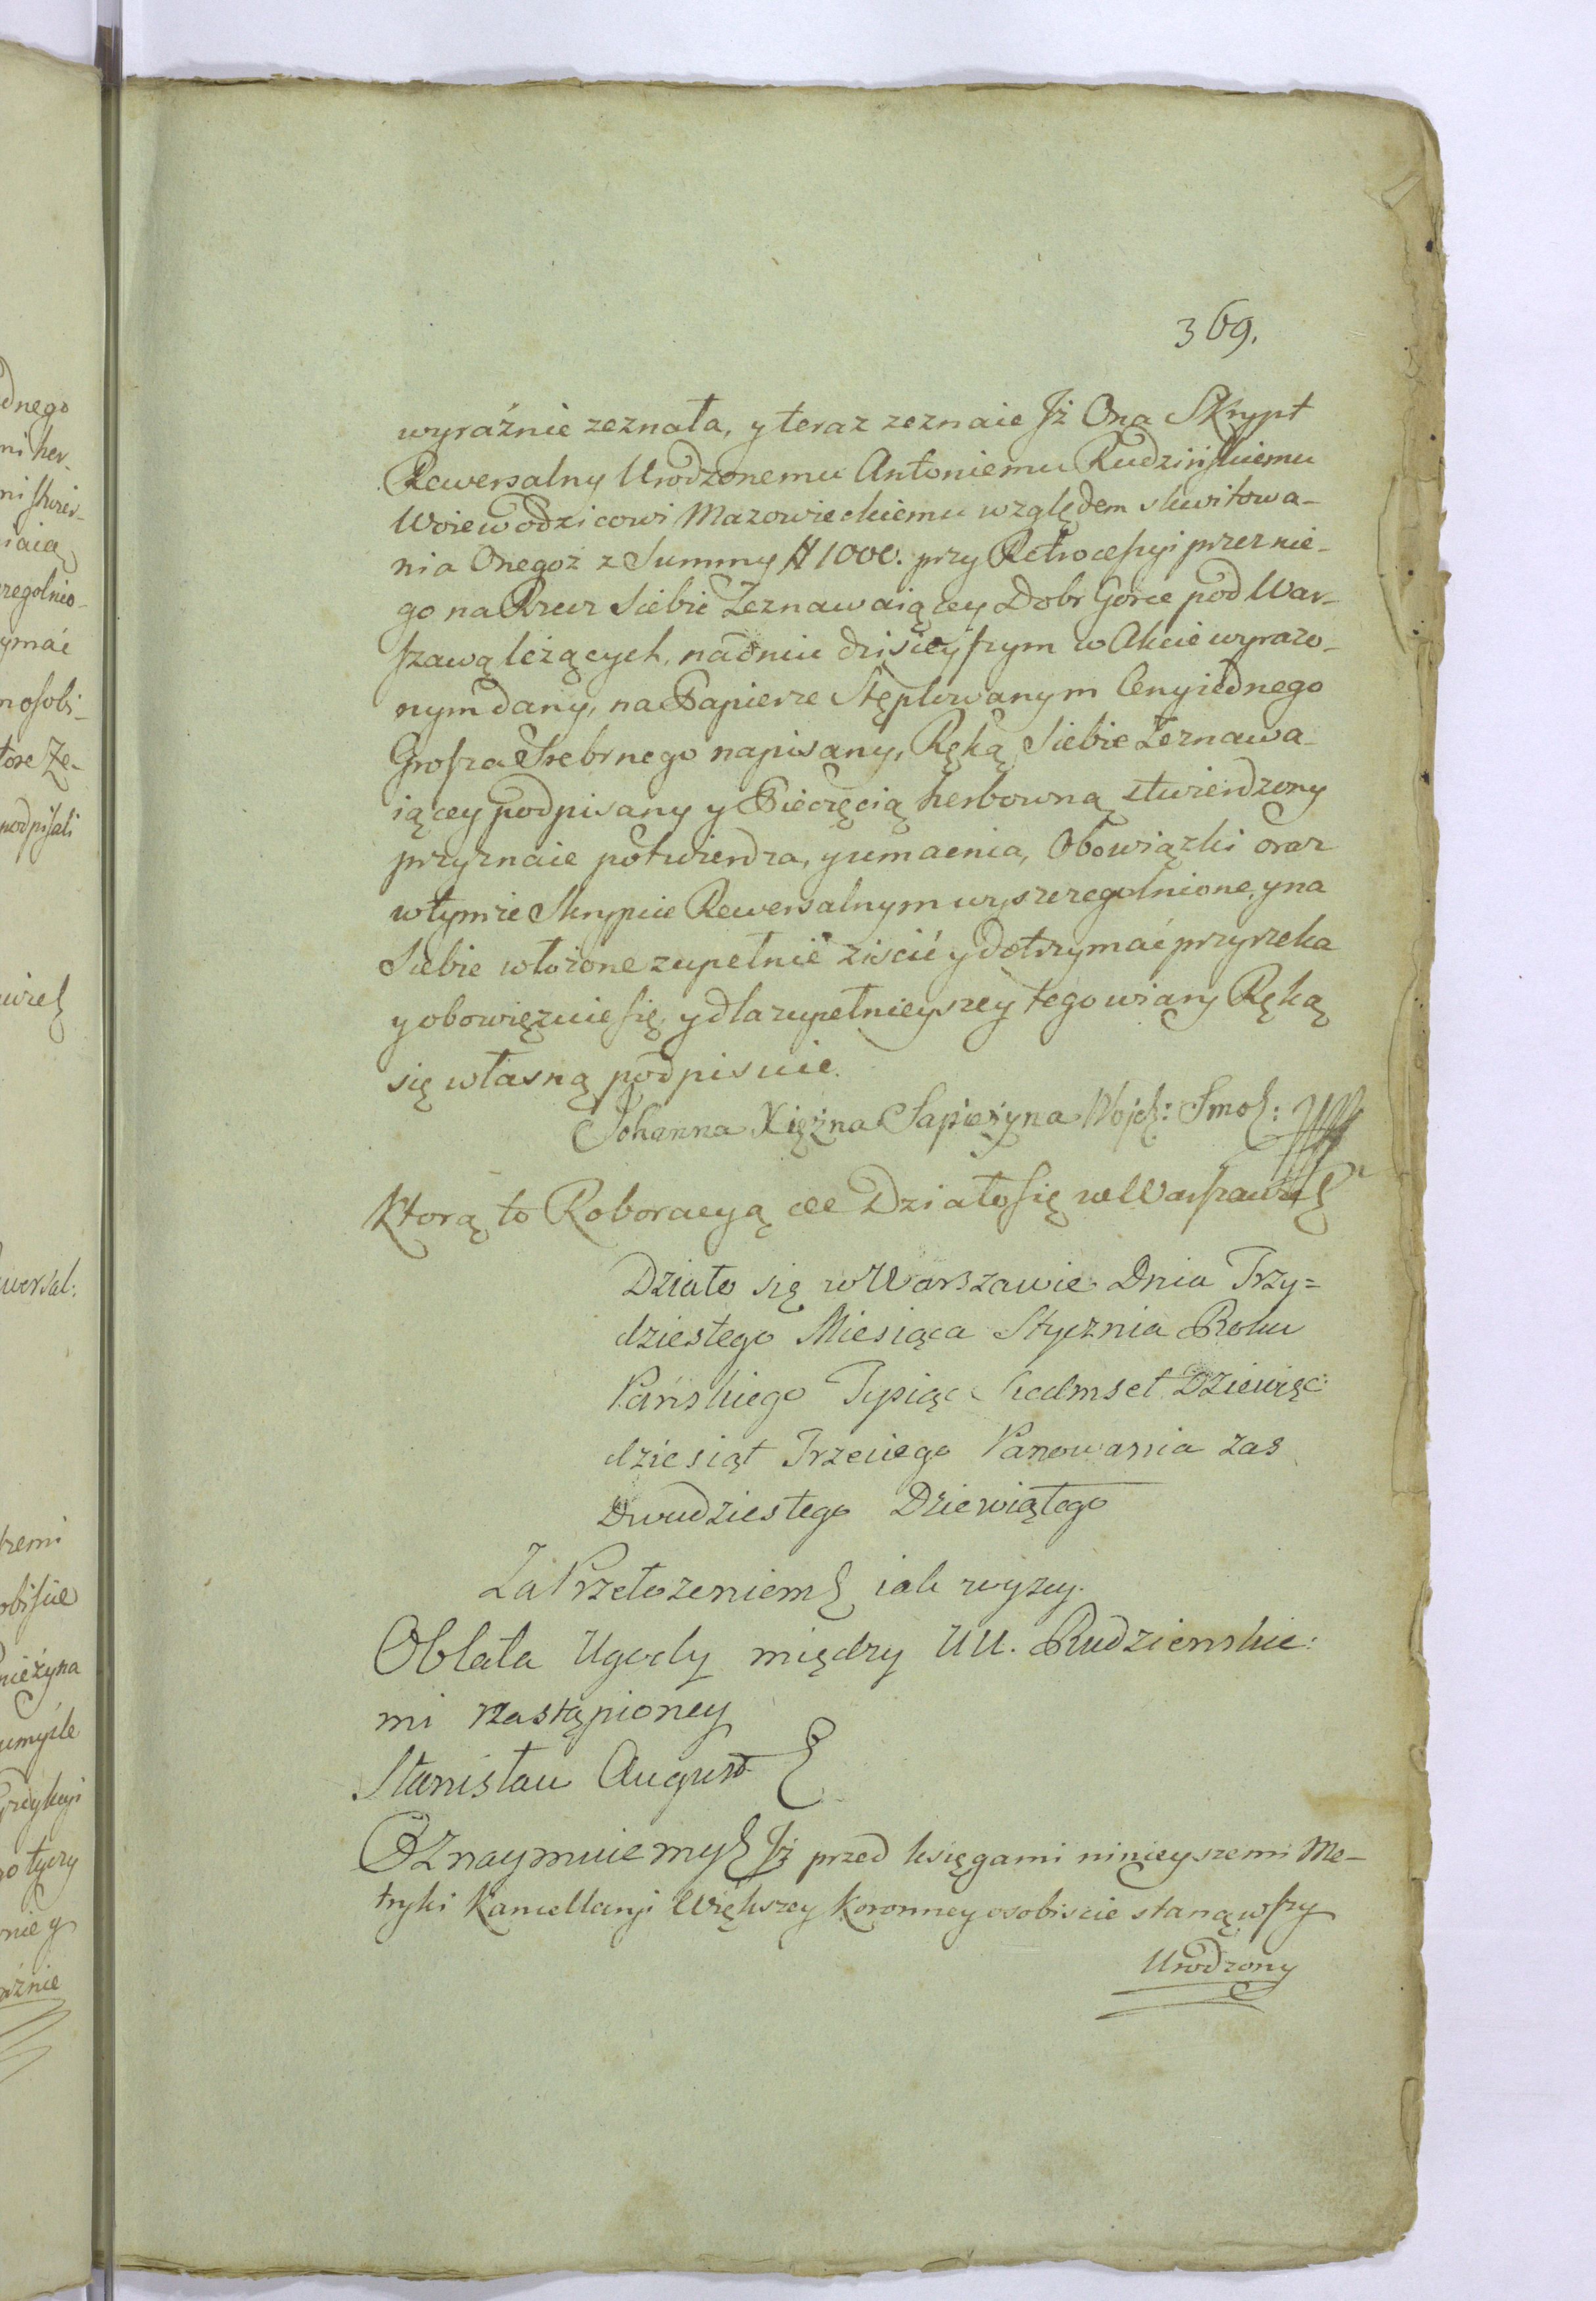 369.
wyraźnie zeznała, y teraz zeznaie Jż Ona Skrypt
Rewersalny Urodzonemu Antoniemu Rudzińskiemu
Woiewodzicowi Mazowieckiemu względem skwitowa-
nia Onegoż z Summy # 1000. przy Retrocessyi przez nie-
go na Rzecz Siebie Zeznawaiącey Dobr Gorce pod War-
szawą leżących, na dniu dzisieyszym w Akcie wyrażo-
nym dany, na Papierze Stęplowanym Ceny iednego
Grosza Srebrnego napisany, Ręką Siebie Zeznawa-
iącey podpisany y Pieczęcią herbowną stwierdzony
przyznaie potwierdza, y umacnia, Obowiązki oraz
w tymże Skrypcie Rewersalnym wyszczegulnione, y na
Siebie włożone zupełnie ziścić y dotrzymać przyrzeka
y obowięzuie się, y dla zupełnieyszey tego wiary Ręką
się własną podpisuie.
Johanna Xiężna Sapieżyna Wojd: Smol:
Ktorą to Roboracyą etc Działo się w Warszawie
Działo się w Warszawie Dnia Trzy=
dziestego Miesiąca Stycznia Roku
Pańskiego Tysiąc Siedmset Dziewięć
dziesiąt Trzeciego Panowania zas
Dwudziestego Dziewiątego
Za Przełożeniem iak wyzey.
Oblata Ugody między UU. Rudzienskie:
mi nastąpioney
Stanisław August
Oznaymuiemy Jż przed księgami ninieyszemi Me-
tryki Kancellaryi Większey Koronney osobiscie stanąwszy
Urodzony
dnego
ni her-
iaią
nosobi-
tore Ze-
podpisali
wersal:
obiście
umyśle
nie y
aźnie